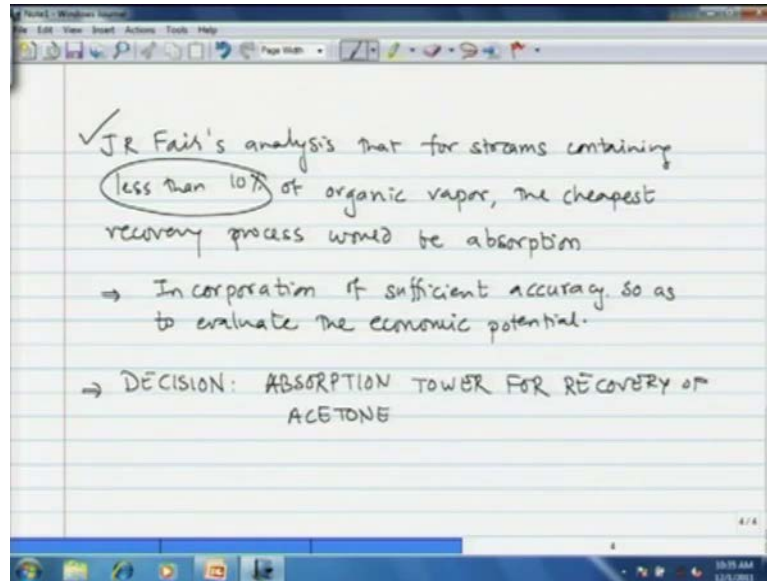 Note1 - Windows Journal
File Edit View Insert Actions Tools Help
Page Width
JR Fair's analysis that for streams containing
less than 10% of organic vapor, the cheapest
recovery process would be absorption
⇒ Incorporation of sufficient accuracy. so as
to evaluate the economic potential.
⇒ DECISION: ABSORPTION TOWER FOR RECOVERY OF
ACETONE
4/4
4
10:35 AM
12/1/2011